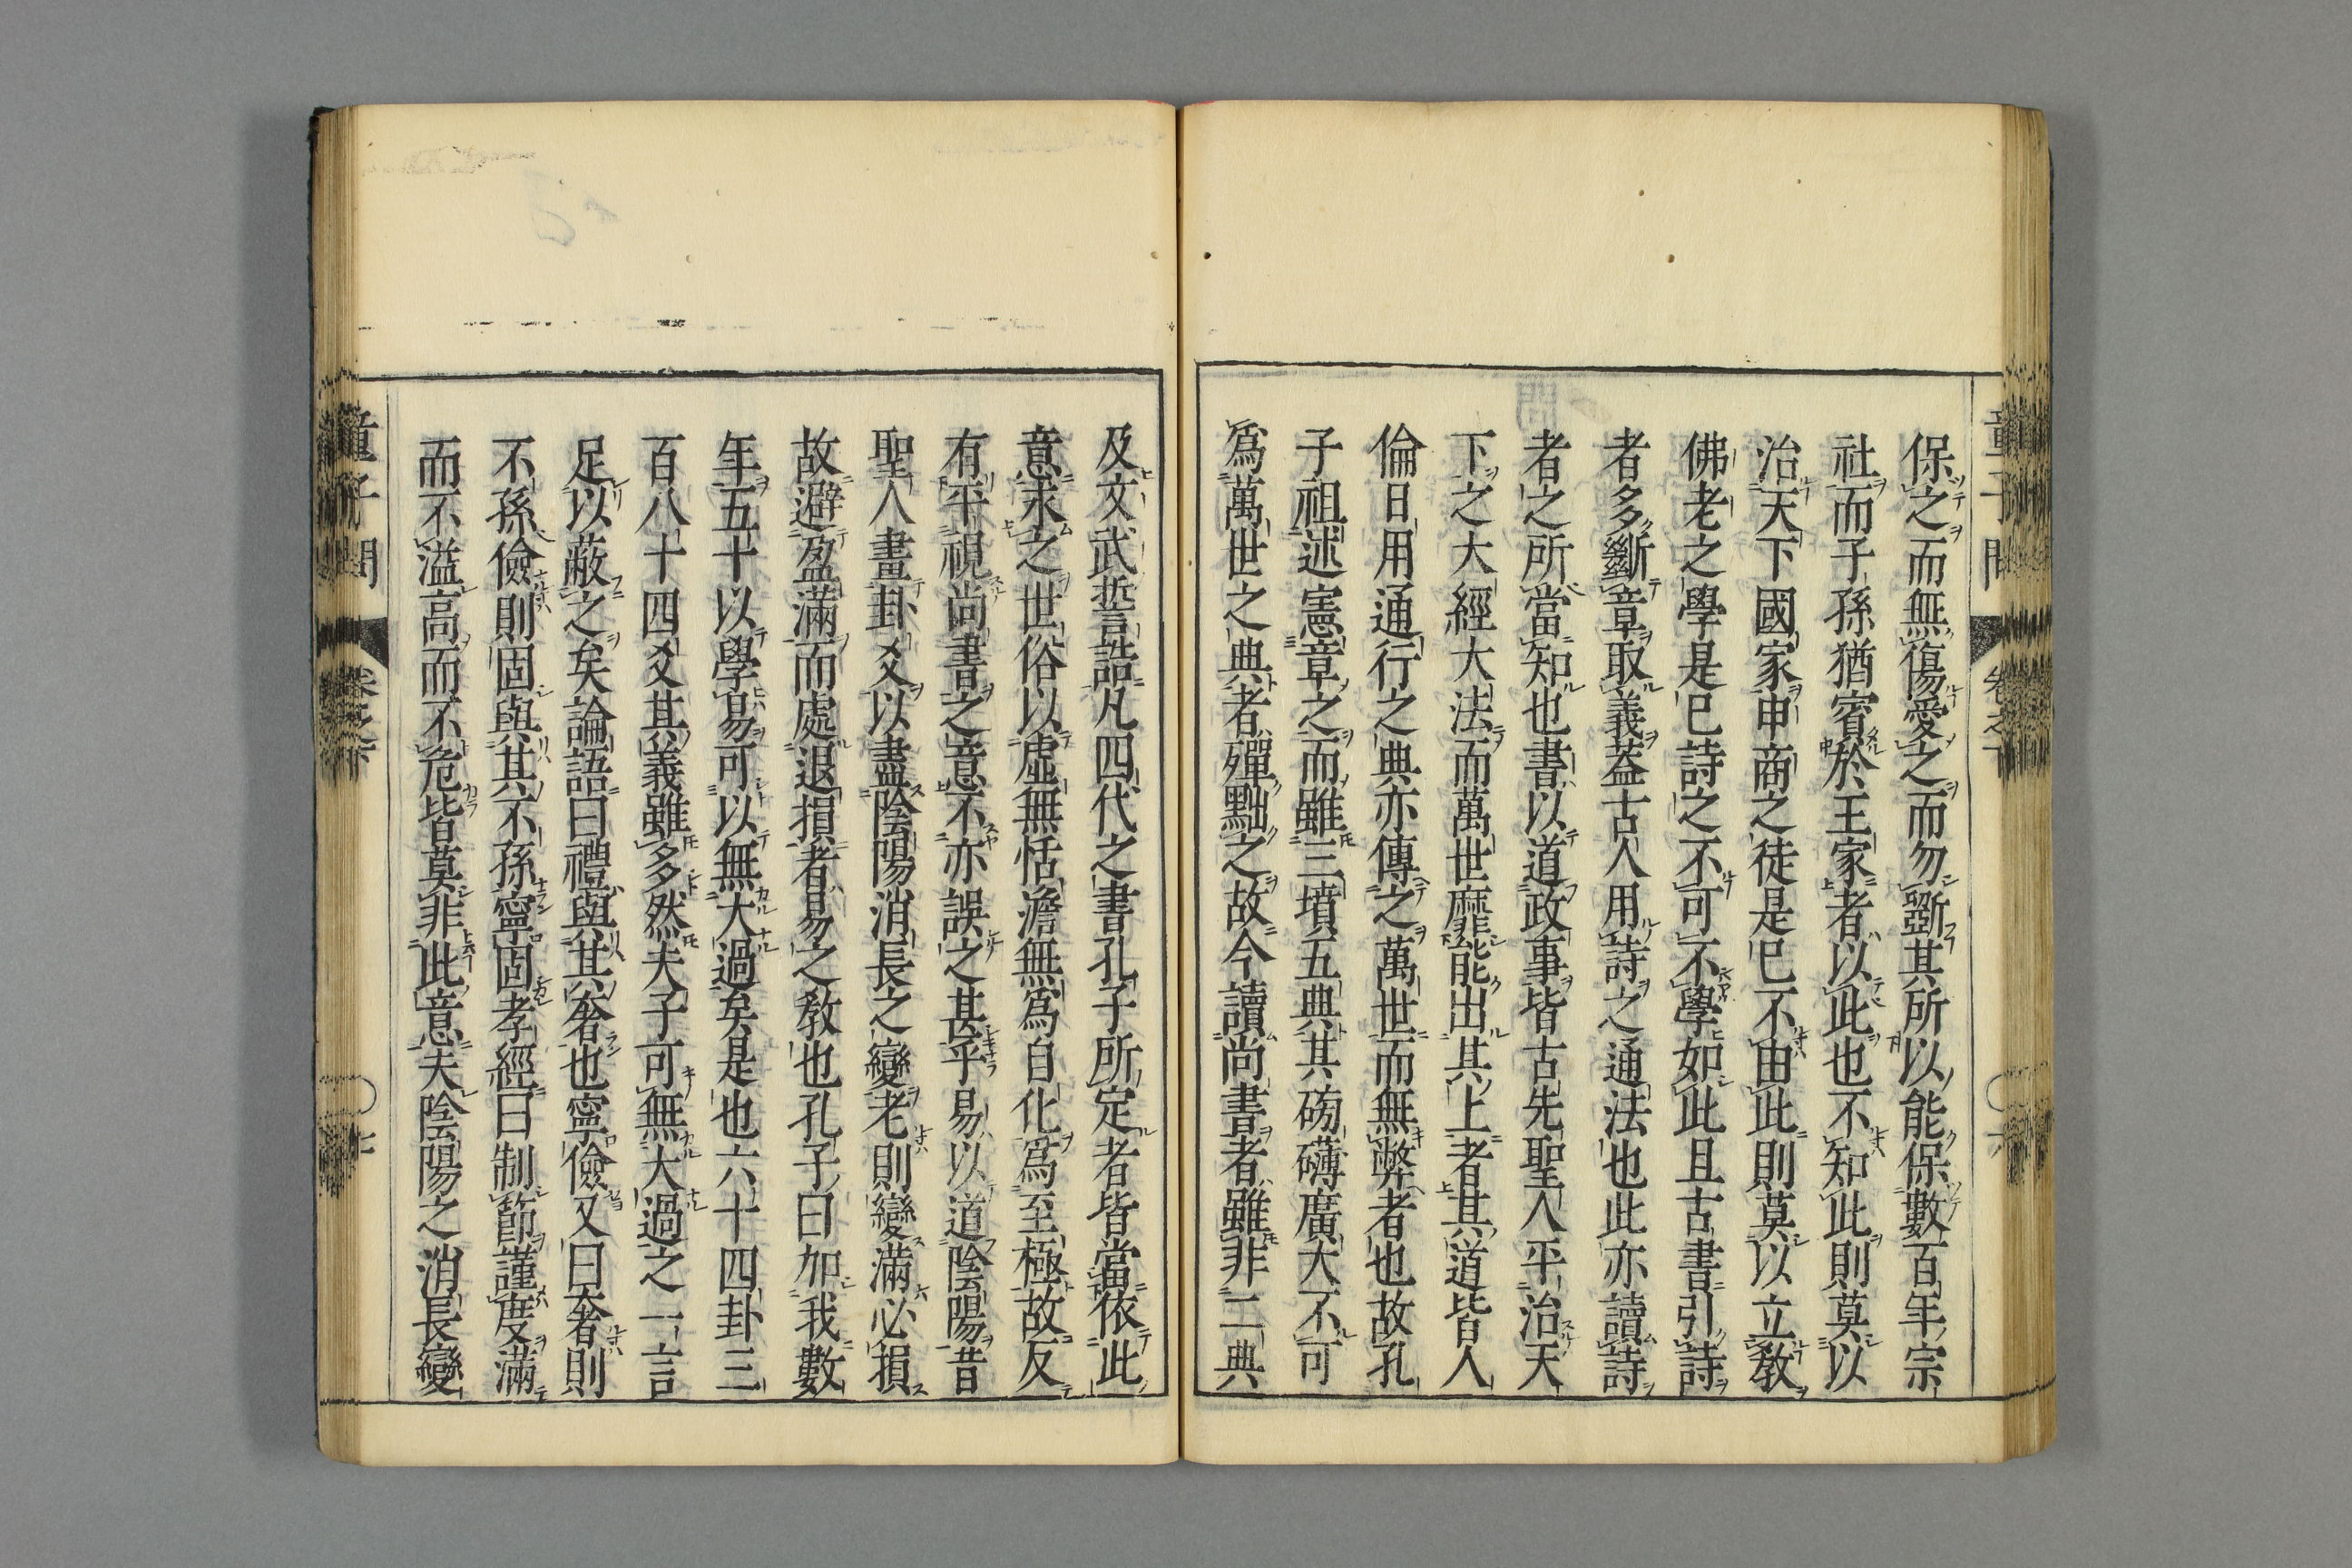 童子問 卷之下
保之而無傷愛之而勿斵其所以能保數百年宗
社而子孫猶賓於王家者以此也不知此則莫以
治天下國家申商之徒是已不由此則莫以立敎
佛老之學是已詩之不可不學如此且古書引詩
者多斷章取義葢古人用詩之通法也此亦讀詩
者之所當知也書以道政事皆古先聖人平治天
下之大經大法而萬世靡能出其上者其道皆人
倫日用通行之典亦傳之萬世而無弊者也故孔
子祖述憲章之而雖三墳五典其磅礴廣大不可
爲萬世之典者殫黜之故今讀尚書者雖非二典
及文武誓誥凡四代之書孔子所定者皆當依此
意求之世俗以虛無恬澹無爲自化爲至極故反
有平視尚書之意不亦誤之甚乎易以道陰陽昔
聖人畫卦爻以盡陰陽消長之變老則變滿必損
故避盈滿而處退損者易之敎也孔子曰加我數
年五十以學易可以無大過矣是也六十四卦三
百八十四爻其義雖多然夫子可無大過之一言
足以蔽之矣論語曰禮與其奢也寧儉又曰奢則
不孫儉則固與其不孫寧固孝經曰制節謹度滿
而不溢高而不危皆莫非此意夫陰陽之消長變
童子問